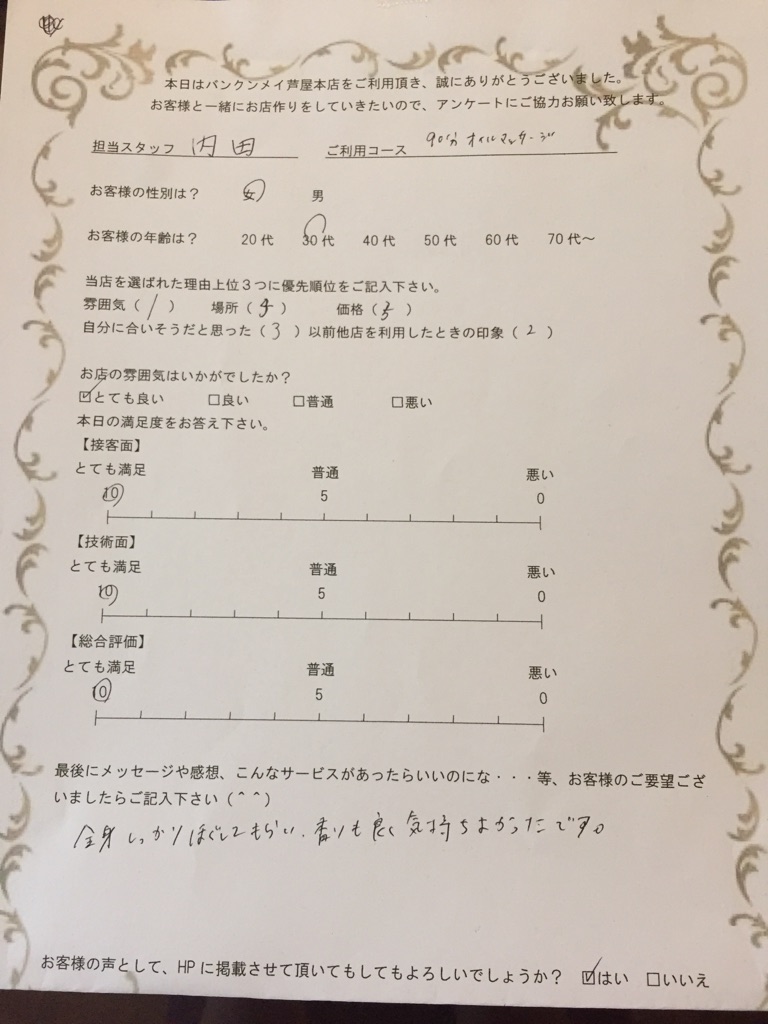 本日はバンクンメイ芦屋本店をご利用頂き、誠にありがとうございました。
お客様と一緒にお店作りをしていきたいので、アンケートにご協力お願い致します。
担当スタッフ 内田 ご利用コース 90分オイルマッサージ
お客様の性別は? 女 男
お客様の年齢は? 20代 30代 40代 50代 60代 70代~
当店を選ばれた理由上位3つに優先順位をご記入下さい。
雰囲気( 1 ) 場所( 4 ) 価格( )
自分に合いそうだと思った( 3 )以前他店を利用したときの印象( 2 )
お店の雰囲気はいかがでしたか?
☑とても良い □良い □普通 □悪い
本日の満足度をお答え下さい。
【接客面】
とても満足 普通 悪い
10 5 0
【技術面】
とても満足 普通 悪い
10 5 0
【総合評価】
とても満足 普通 悪い
10 5 0
最後にメッセージや感想、こんなサービスがあったらいいのにな・・・等、お客様のご要望ござ
いましたらご記入下さい(^^)
全身しっかりほぐしてもらい、香りも良く気持ちよかったです。
お客様の声として、HPに掲載させて頂いてもしてもよろしいでしょうか? ☑はい □いいえ